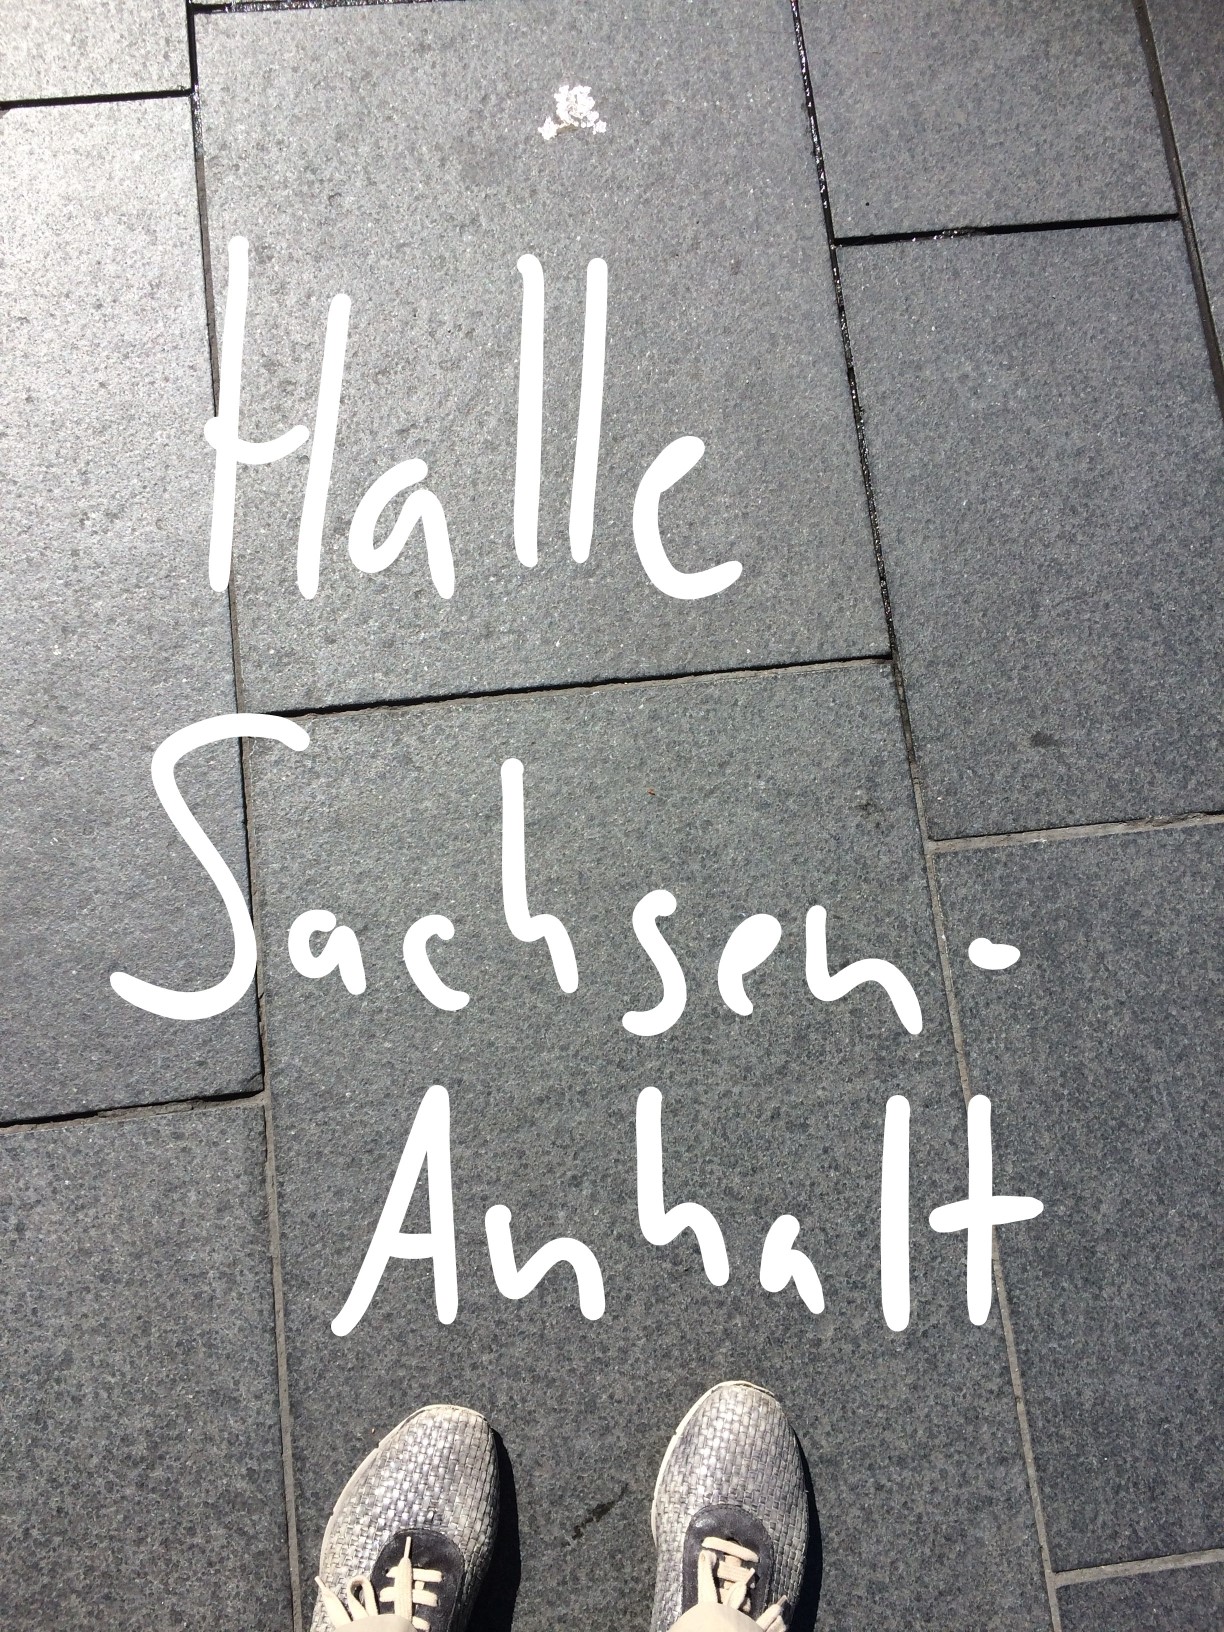 Halle
Sachsen-
Anhalt